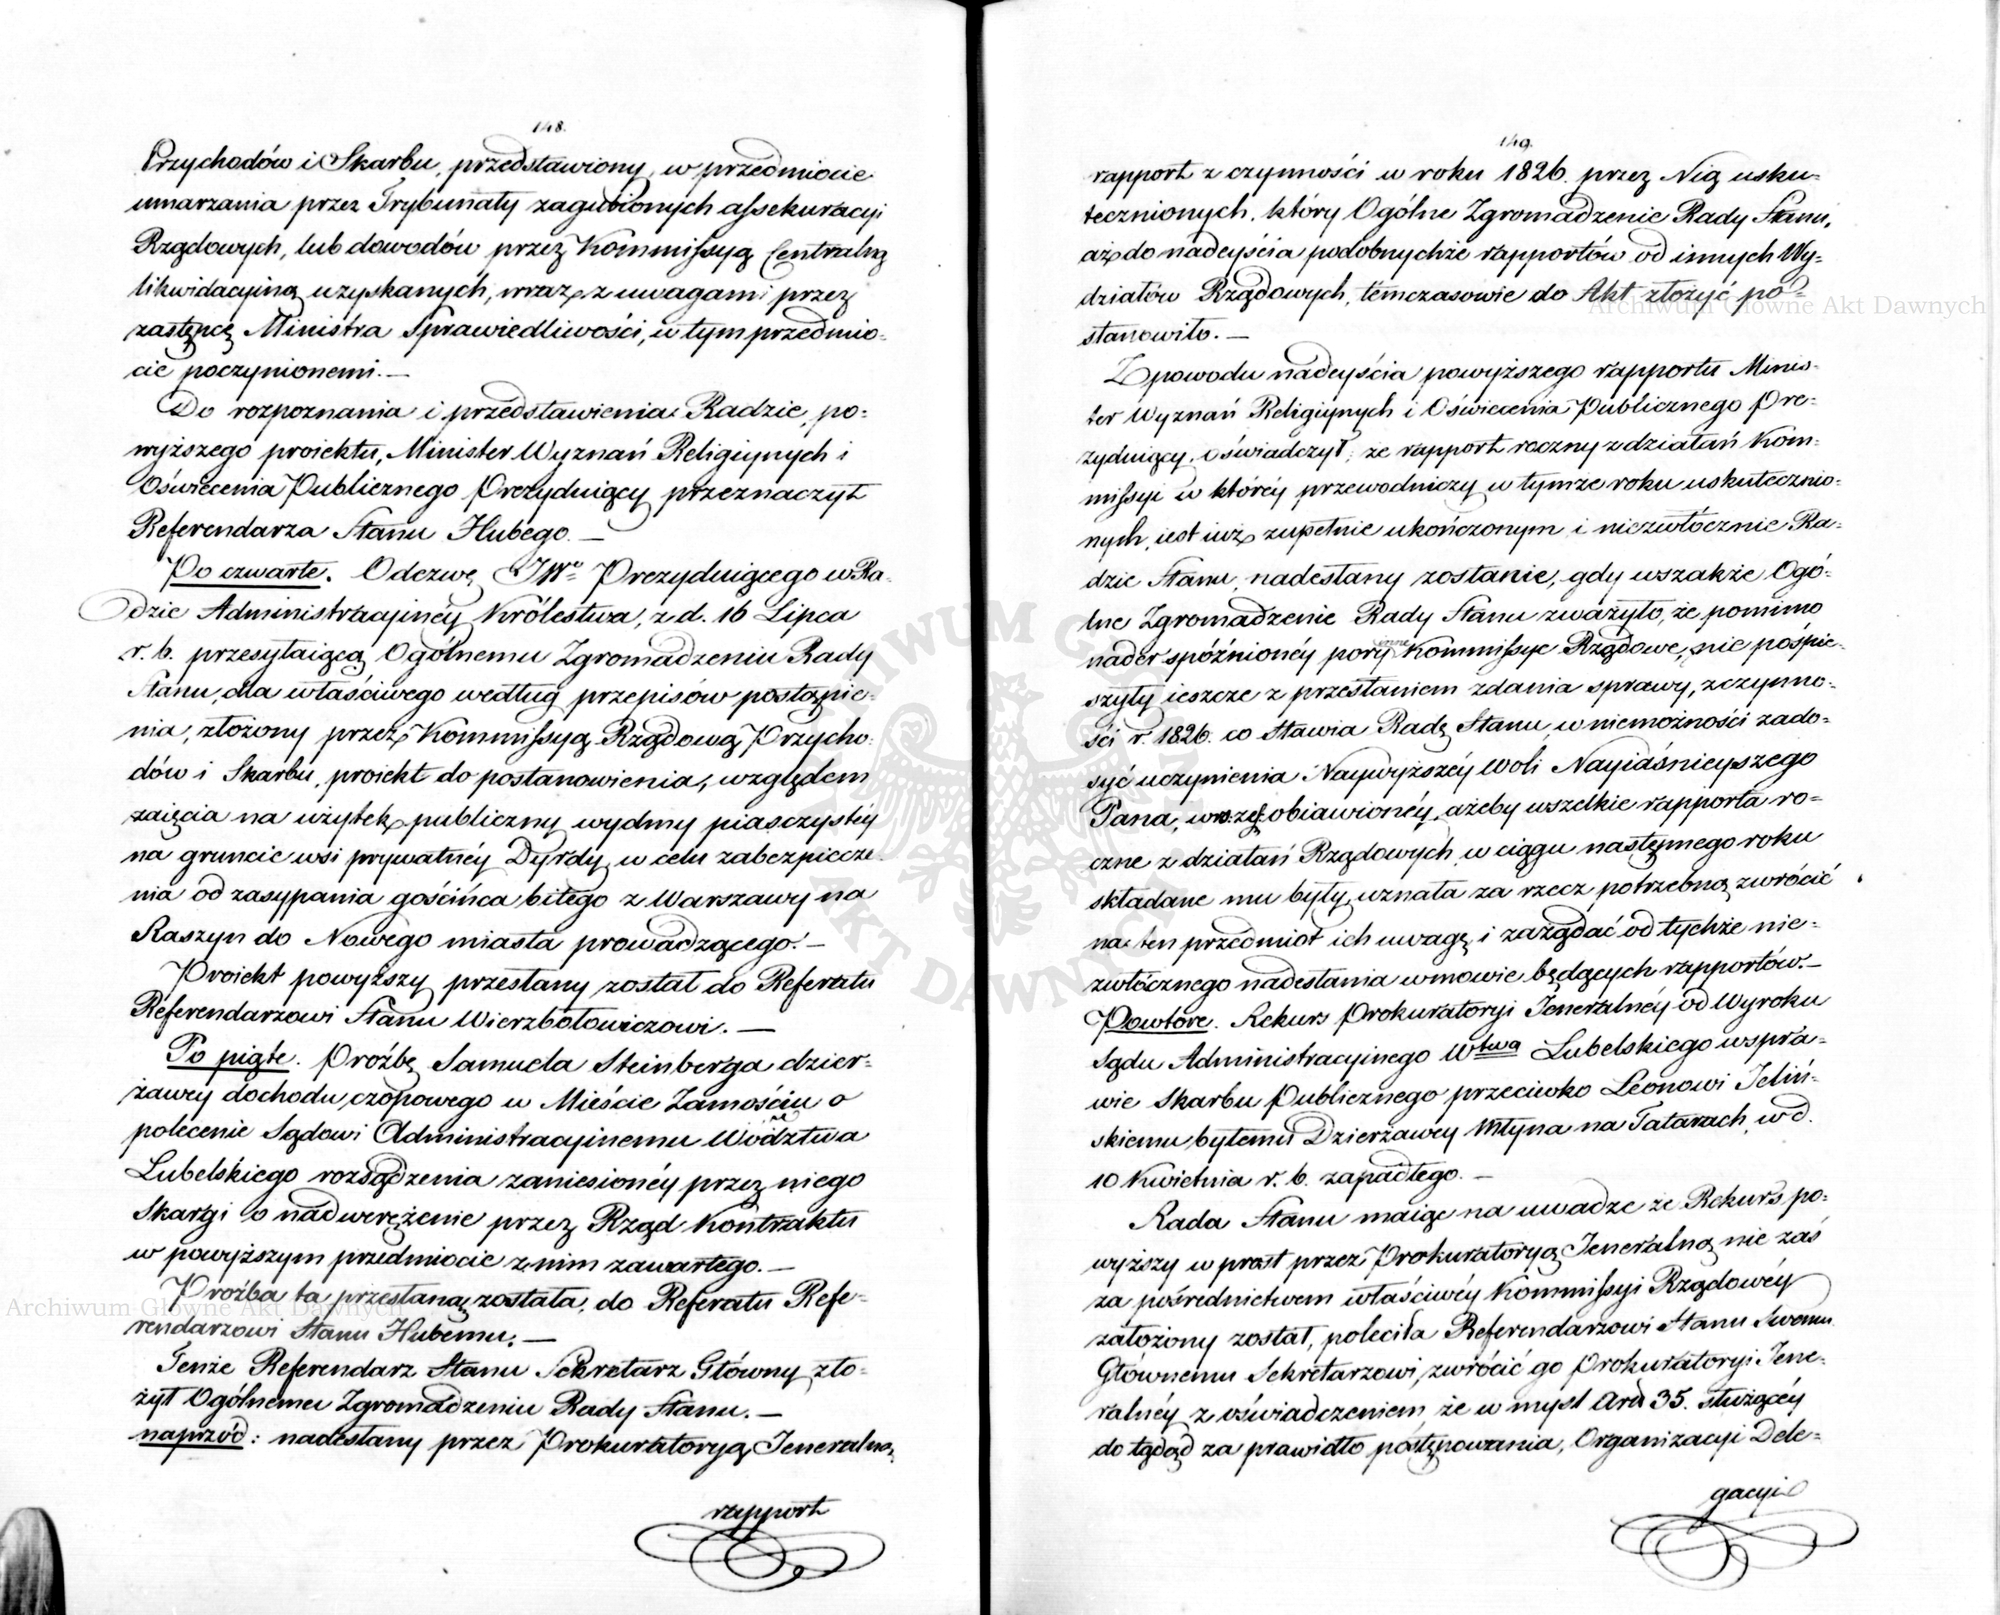 148.
Przychodów i Skarbu, przedstawiony, w przedmiocie
umarzania przez Trybunały zagubionych assekuracyi
Rządowych, lub dowodów przez Kommissyą Centralną
likwidacyiną uzyskanych, wraz z uwagami przez
zastępcę Ministra Sprawiedliwości, w tym przedmio-
cie poczynionemi. —
Do rozpoznania i przedstawienia Radzie, po-
wyższego proiektu, Minister Wyznań Religiynych i
Oświecenia Publicznego Prezyduiący przeznaczył
Referendarza Stanu Hubego. —
Po czwarte. Odezwę JWo Prezyduiącego w Ra-
dzie Administracyinéy Królestwa, z d. 16 Lipca
r. b. przesyłaiącą Ogólnemu Zgromadzeniu Rady
Stanu, dla właściwego według przepisów postąpie-
nia, złożony przez Kommissyą Rządową Przycho-
dów i Skarbu, proiekt do postanowienia, względem
zaięcia na użytek publiczny wydmy piasczystéy
na gruncie wsi prywatnéy Dyrdy, w celu zabezpiecze-
nia od zasypania gościńca bitego z Warszawy na
Raszyn do Nowego miasta prowadzącego. —
Proiekt powyższy przesłany został do Referatu
Referendarzowi Stanu Wierzbołowiczowi. —
Po piąte. Proźbę Samuela Steinberga dzier-
żawcy dochodu czopowego w Mieście Zamościu o
polecenie Sądowi Administracyinemu Wództwa
Lubelskiego rozsądzenia zaniesionéy przez niego
Skargi o nadwerężenie przez Rząd Kontraktu
w powyższym przedmiocie z nim zawartego. —
Proźba ta przesłaną została, do Referatu Refe-
rendarzowi Stanu Hubemu. —
Tenże Referendarz Stanu Sekretarz Główny zło-
żył Ogólnemu Zgromadzeniu Rady Stanu. —
naprzód: nadesłany przez Prokuratoryą Jeneralną,
rapport
149.
rapport z czynności w roku 1826. przez Nią usku-
tecznionych, który Ogólne Zgromadzenie Rady Stanu,
aż do nadeyścia podobnychże rapportów od innych Wy-
działów Rządowych, temczasowie do Akt złożyć po-
stanowiło. —
Z powodu nadeyścia powyższego rapportu Minis-
ter Wyznań Religiynych i Oświecenia Publicznego Pre-
zyduiący, oświadczył; że rapport roczny z działań Kom-
missyi w któréy przewodniczy w tymże roku uskutecznio-
nych, iest iuż zupełnie ukończonym i niezwłócznie Ra-
dzie Stanu, nadesłany zostanie, gdy wszakże Ogó-
lne Zgromadzenie Rady Stanu zważyło, że pomimo
nader spóźnionéy pory inne Kommissye Rządowe, nie pośpie-
szyły ieszcze z przesłaniem zdania sprawy, z czynno-
ści r. 1826. co stawia Radę Stanu, w niemożności zado-
syć uczynienia Naywyższéy Woli Nayiaśnieyszego
Pana, obiawionéy, ażeby wszelkie rapporta ro-
czne z działań Rządowych, w ciągu następnego roku
składane mu były, uznała za rzecz potrzebną zwrócić
na ten przedmiot ich uwagę i zażądać od tychże nie-
zwłócznego nadesłania w mowie będących rapportów. —
Powtóre. Rekurs Prokuratoryi Jeneralnéy od Wyroku
Sądu Administracyinego Wtwa Lubelskiego w spra-
wie Skarbu Publicznego przeciwko Leonowi Jeliń-
skiemu byłemu Dzierżawcy Młyna na Tatarach, w d.
10 Kwietnia r. b. zapadłego. —
Rada Stanu maiąc na uwadze że Rekurs po-
wyższy w prost przez Prokuratoryą Jeneralną nie zaś
za pośrednictwem właściwéy Kommissyi Rządowéy
założony został, poleciła Referendarzowi Stanu Swemu
Głównemu Sekretarzowi, zwrócić go Prokuratoryi Jene-
ralnéy z oświadczeniem, że w myśl Artł 35. służącéy
do tąd za prawidło postępowania, Organizacyi Dele-
gacyi
Archiwum Główne Akt Dawnych
Archiwum Główne Akt Dawnych